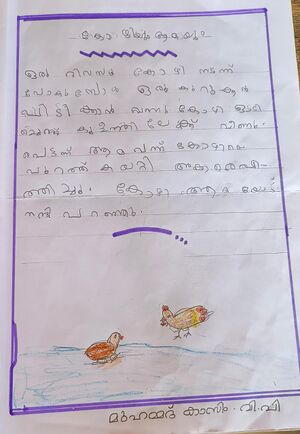 കോഴിയും ആമയും
ഒരു ദിവസം കോഴി നടന്ന്
പോകുമ്പോൾ ഒരു കുറുക്കൻ
പിടിക്കാൻ വന്നു കോഴി ഓടി
കുളത്തിലേക്ക് വീണു.
പെട്ടന്ന് ആമ വന്ന് കോഴിയെ
പുറത്ത് കയറ്റി
കോഴി ആമയോട്
നന്ദി പറഞ്ഞു.
മുഹമ്മദ് കാസിം . വി.പി